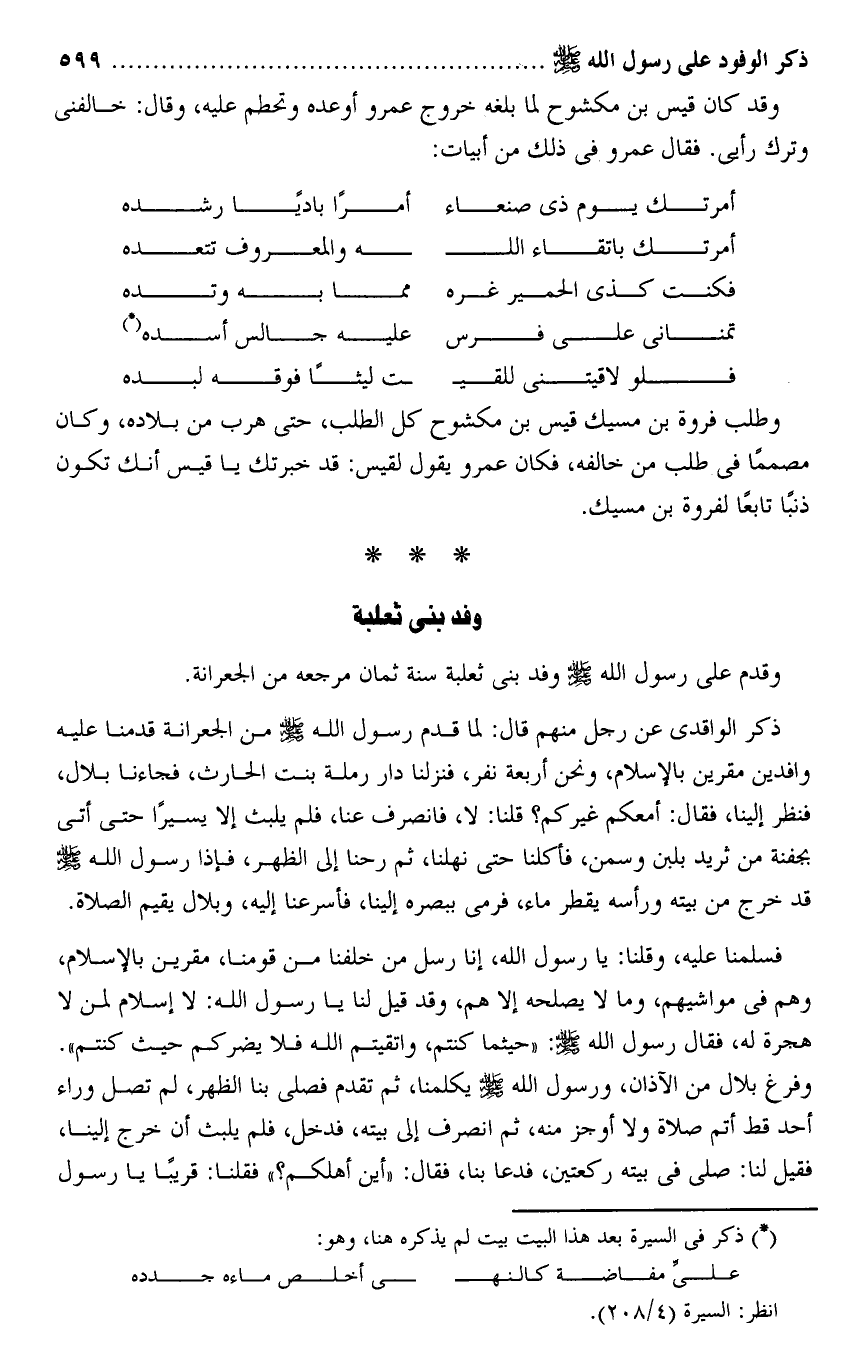 ذكر الوفود على رسول الله ﷺ ........................................................ ٥٩٩
وقد كان قيس بن مكشوح لما بلغه خروج عمرو أوعده وتحطم عليه، وقال: خالفنى
وترك رأيى. فقال عمرو فى ذلك من أبيات:
أمرتك يوم ذى صنعاء أمرًا باديًا رشده
أمرتك باتقاء اللـ ـه والمعروف تتعده
فكنت كذى الحمير غره مما به وتده
تمنانى على فرس عليه جالس أسده(*)
فلو لاقيتنى للقيـ ـت ليثًا فوقه لبده
وطلب فروة بن مسيك قيس بن مكشوح كل الطلب، حتى هرب من بلاده، وكان
مصممًا فى طلب من خالفه، فكان عمرو يقول لقيس: قد خبرتك يا قيس أنك تكون
ذنبًا تابعًا لفروة بن مسيك.
* * *
وفد بنى ثعلبة
وقدم على رسول الله ﷺ وفد بنى ثعلبة سنة ثمان مرجعه من الجعرانة.
ذكر الواقدى عن رجل منهم قال: لما قدم رسول الله ﷺ من الجعرانة قدمنا عليه
وافدين مقرين بالإسلام، ونحن أربعة نفر، فنزلنا دار رملة بنت الحارث، فجاءنا بلال،
فنظر إلينا، فقال: أمعكم غيركم؟ قلنا: لا، فانصرف عنا، فلم يلبث إلا يسيرًا حتى أتى
بجفنة من ثريد بلبن وسمن، فأكلنا حتى نهلنا، ثم رحنا إلى الظهر، فإذا رسول الله ﷺ
قد خرج من بيته ورأسه يقطر ماء، فرمى ببصره إلينا، فأسرعنا إليه، وبلال يقيم الصلاة.
فسلمنا عليه، وقلنا: يا رسول الله، إنا رسل من خلفنا من قومنا، مقرين بالإسلام،
وهم فى مواشيهم، وما لا يصلحه إلا هم، وقد قيل لنا يا رسول الله: لا إسلام لمن لا
هجرة له، فقال رسول الله ﷺ: «حيثما كنتم، واتقيتم الله فلا يضركم حيث كنتم».
وفرغ بلال من الآذان، ورسول الله ﷺ يكلمنا، ثم تقدم فصلى بنا الظهر، لم تصل وراء
أحد قط أتم صلاة ولا أوجز منه، ثم انصرف إلى بيته، فدخل، فلم يلبث أن خرج إلينا،
فقيل لنا: صلى فى بيته ركعتين، فدعا بنا، فقال: «أين أهلكم؟» فقلنا: قريبًا يا رسول
(*) ذكر فى السيرة بعد هذا البيت بيت لم يذكره هنا، وهو:
علىَّ مفاضة كالنهـ ـى أخلص ماءه جدده
انظر: السيرة (٢٠٨/٤).